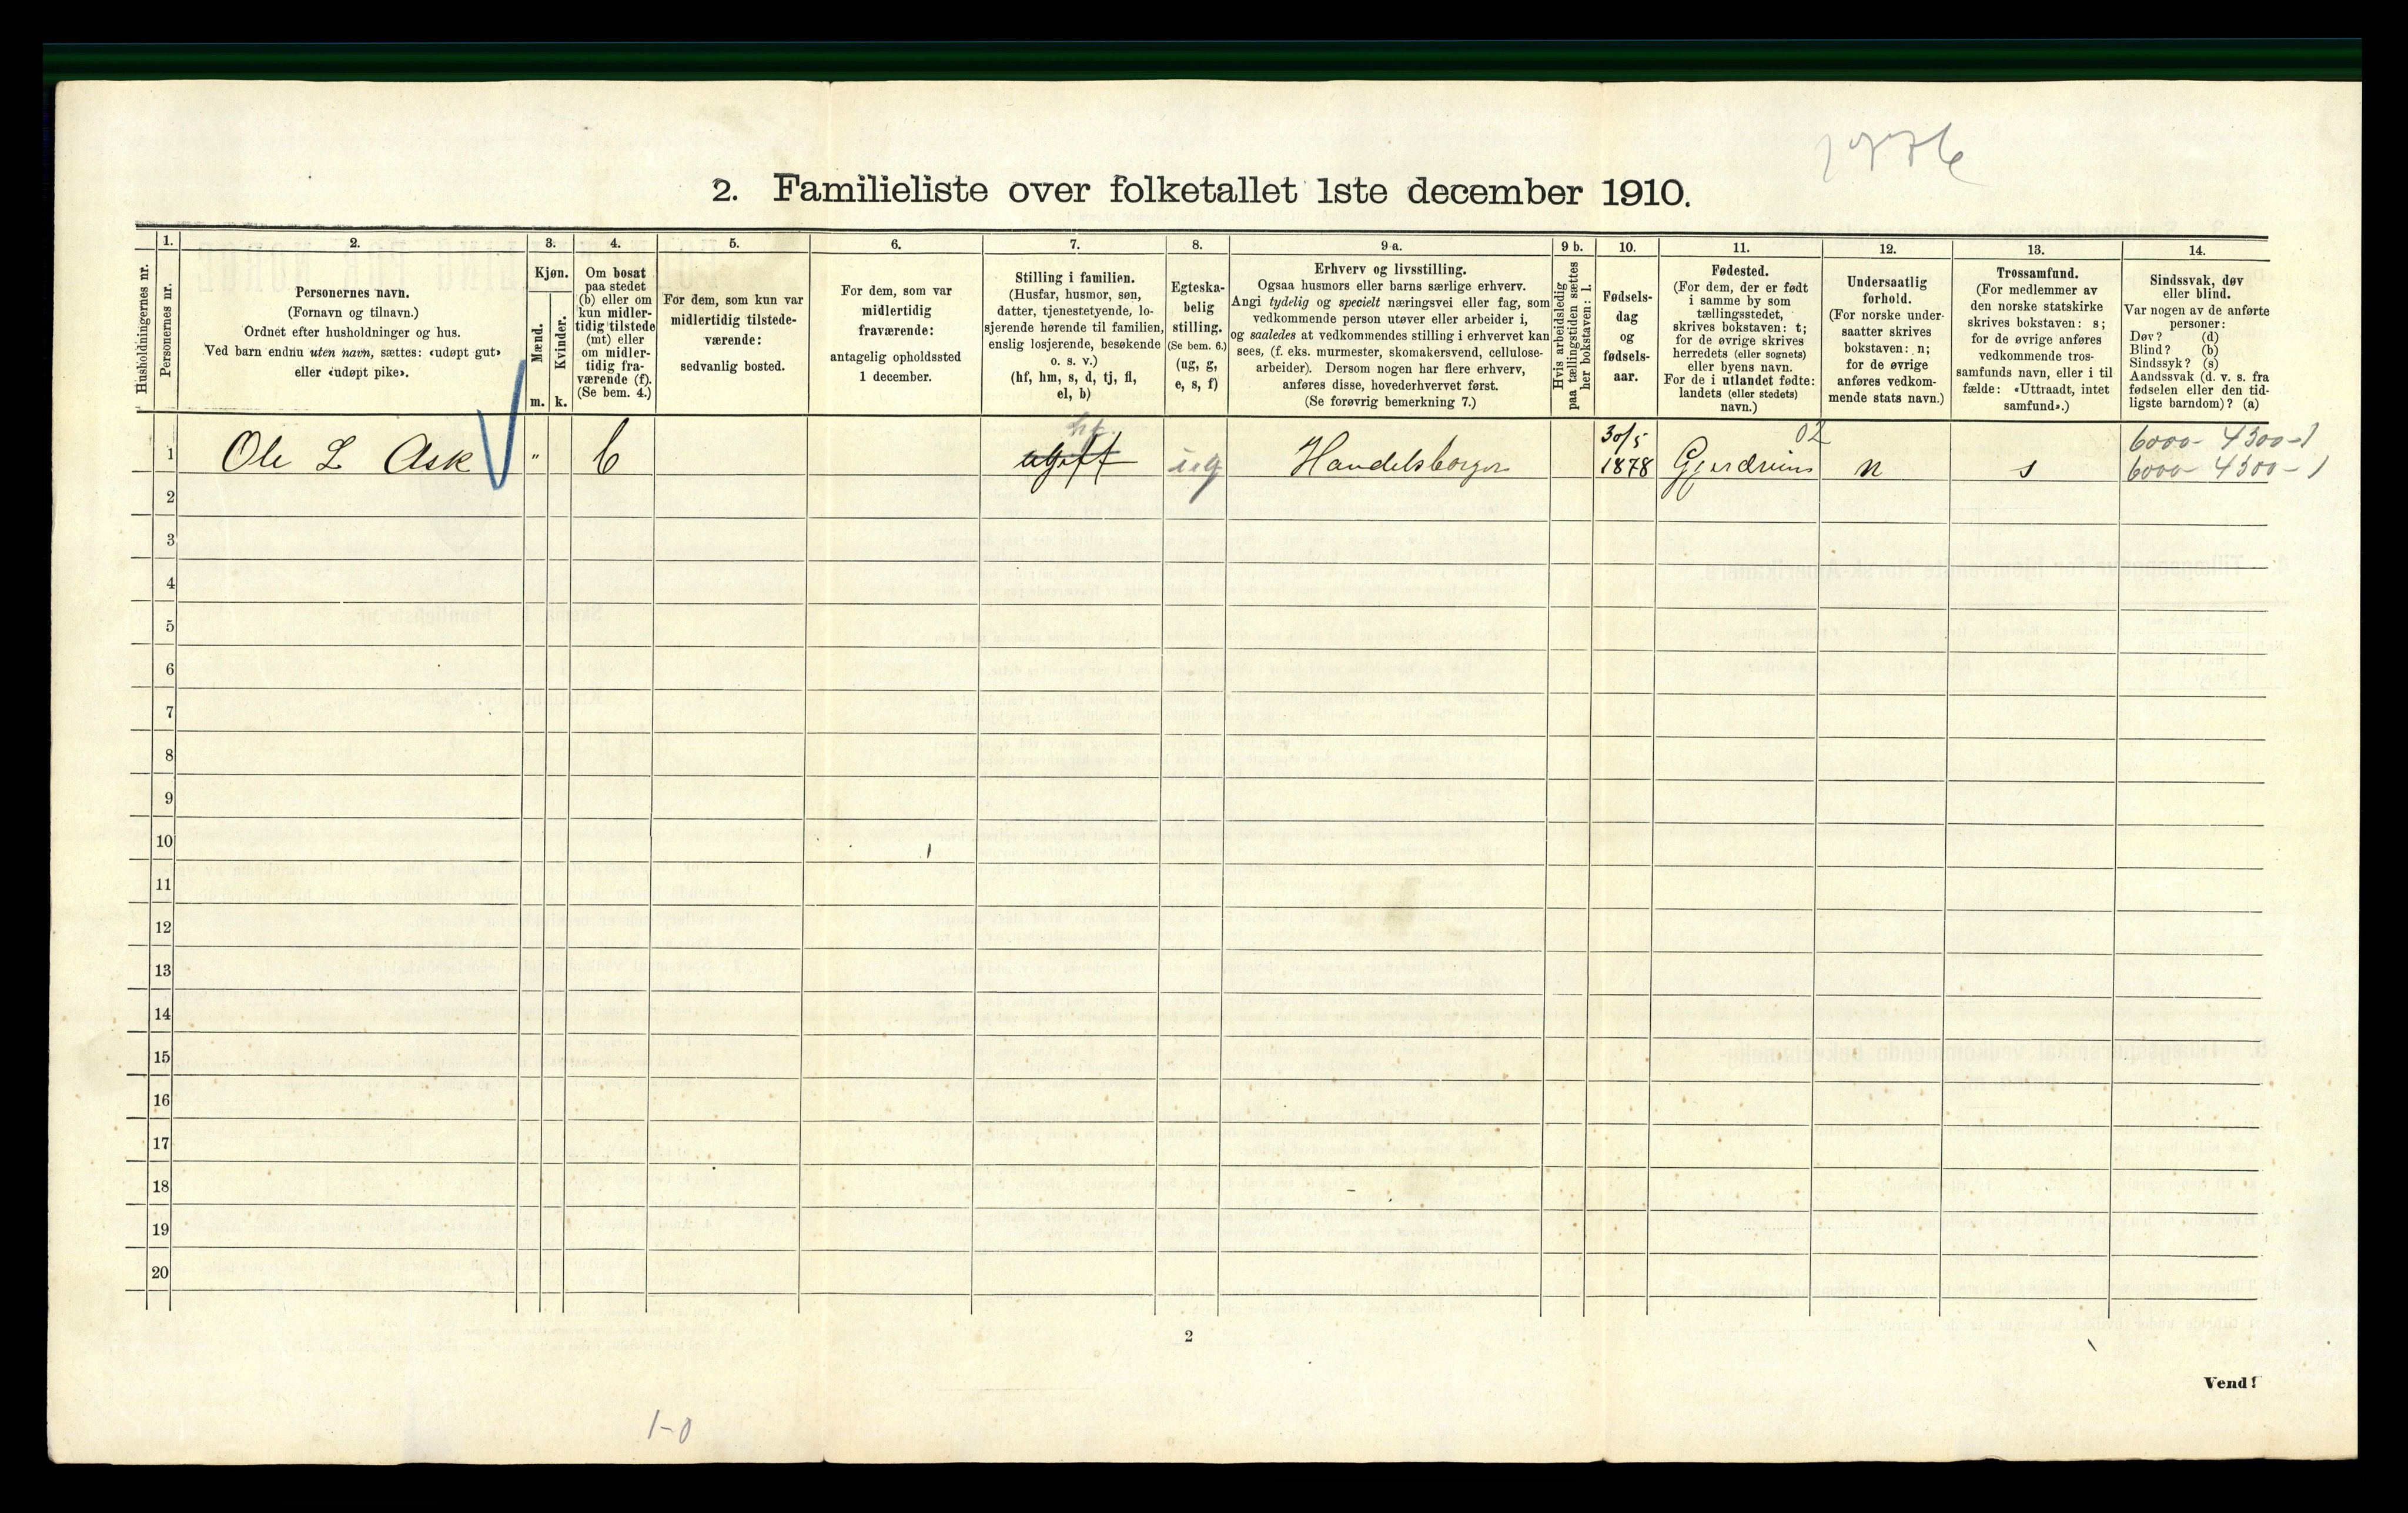 2. Familieliste over folketallet 1ste december 1910.
Husholdningernes nr.
1.
Personernes nr.
2.
Personernes navn.
(Fornavn og tilnavn.)
Ordnet efter husholdninger og hus.
Ved barn endnu uten navn, sættes: «udøpt gut»
eller «udøpt pike».
3.
Kjøn.
Mænd.
m.
Kvinder.
k.
4.
Om bosat
paa stedet
(b) eller om
kun midler-
tidig tilstede
(mt) eller
om midler-
tidig fra-
værende (f).
(Se bem. 4.)
5.
For dem, som kun var
midlertidig tilstede-
værende:
sedvanlig bosted.
6.
For dem, som var
midlertidig
fraværende:
antagelig opholdssted
1 december.
7.
Stilling i familien.
(Husfar, husmor, søn,
datter, tjenestetyende, lo-
sjerende hørende til familien,
enslig losjerende, besøkende
o. s. v.)
(hf, hm, s, d, tj, fl,
el, b)
8.
Egteska-
belig
stilling.
(Se bem. 6.)
(ug, g,
e, s, f)
9 a.
Erhverv og livsstilling.
Ogsaa husmors eller barns særlige erhverv.
Angi tydelig og specielt næringsvei eller fag, som
vedkommende person utøver eller arbeider i,
og saaledes at vedkommendes stilling i erhvervet kan
sees, (f. eks. murmester, skomakersvend, cellulose-
arbeider). Dersom nogen har flere erhverv,
anføres disse, hovederhvervet først.
(Se forøvrig bemerkning 7.)
9 b.
Hvis arbeidsledig
paa tællingstiden sættes
her bokstaven: l.
10.
Fødsels-
dag
og
fødsels-
aar.
11.
Fødested.
(For dem, der er født
i samme by som
tællingsstedet,
skrives bokstaven: t;
for de øvrige skrives
herredets (eller sognets)
eller byens navn.
For de i utlandet fødte:
landets (eller stedets)
navn.)
12.
Undersaatlig
forhold.
(For norske under-
saatter skrives
bokstaven: n;
for de øvrige
anføres vedkom-
mende stats navn.)
13.
Trossamfund.
(For medlemmer av
den norske statskirke
skrives bokstaven: s;
for de øvrige anføres
vedkommende tros-
samfunds navn, eller i til
fælde: «Uttraadt, intet
samfund».)
14.
Sindssvak, døv
eller blind.
Var nogen av de anførte
personer:
Døv? (d)
Blind? (b)
Sindssyk? (s)
Aandssvak (d. v. s. fra
fødselen eller den tid-
ligste barndom)? (a)
hf. 30/5 02 6000- 4300-1
1 Ole L Ask " b ugift ug Handelsborger 1878 Gjerdrum n s 6000- 4300-1
2
3
4
5
6
7
8
9
10
11
12
13
14
15
16
17
18
19
20
2
Vend!
1-0